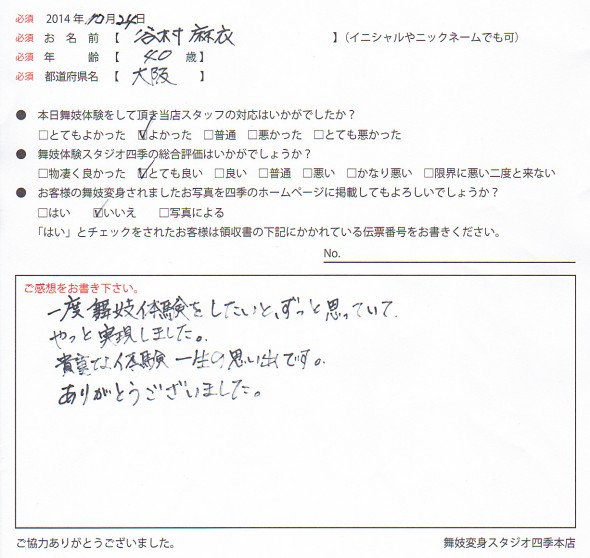 必須 2014年10月24日
必須 お名前【 谷村 麻衣 】(イニシャルやニックネームでも可)
必須 年齢【 40 歳】
必須 都道府県名【 大阪 】
● 本日舞妓体験をして頂き当店スタッフの対応はいかがでしたか？
□とてもよかった ☑よかった □普通 □悪かった □とても悪かった
● 舞妓体験スタジオ四季の総合評価はいかがでしょうか？
□物凄く良かった ☑とても良い □良い □普通 □悪い □かなり悪い □限界に悪い二度と来ない
● お客様の舞妓変身されましたお写真を四季のホームページに掲載してもよろしいでしょうか？
□はい ☑いいえ □写真による
「はい」とチェックをされたお客様は領収書の下記にかかれている伝票番号をお書きください。
No.
ご感想をお書き下さい。
一度舞妓体験をしたいと、ずっと思っていて、
やっと実現しました。
貴重な体験 一生の思い出です。
ありがとうございました。
ご協力ありがとうございました。
舞妓変身スタジオ四季本店